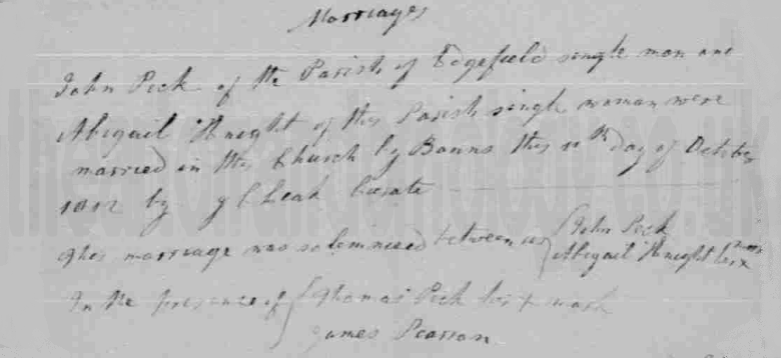 Marriages
John Peck of the Parish of Edgefield single man and
Abigail Knight of this Parish single woman were
married in this Church by Banns this 11th day of October
1812 by J C Leak Curate
This marriage was solemnised between us John Peck
Abigail Knight her x mark
In the presence of Thomas Peck his x mark
James Pearson